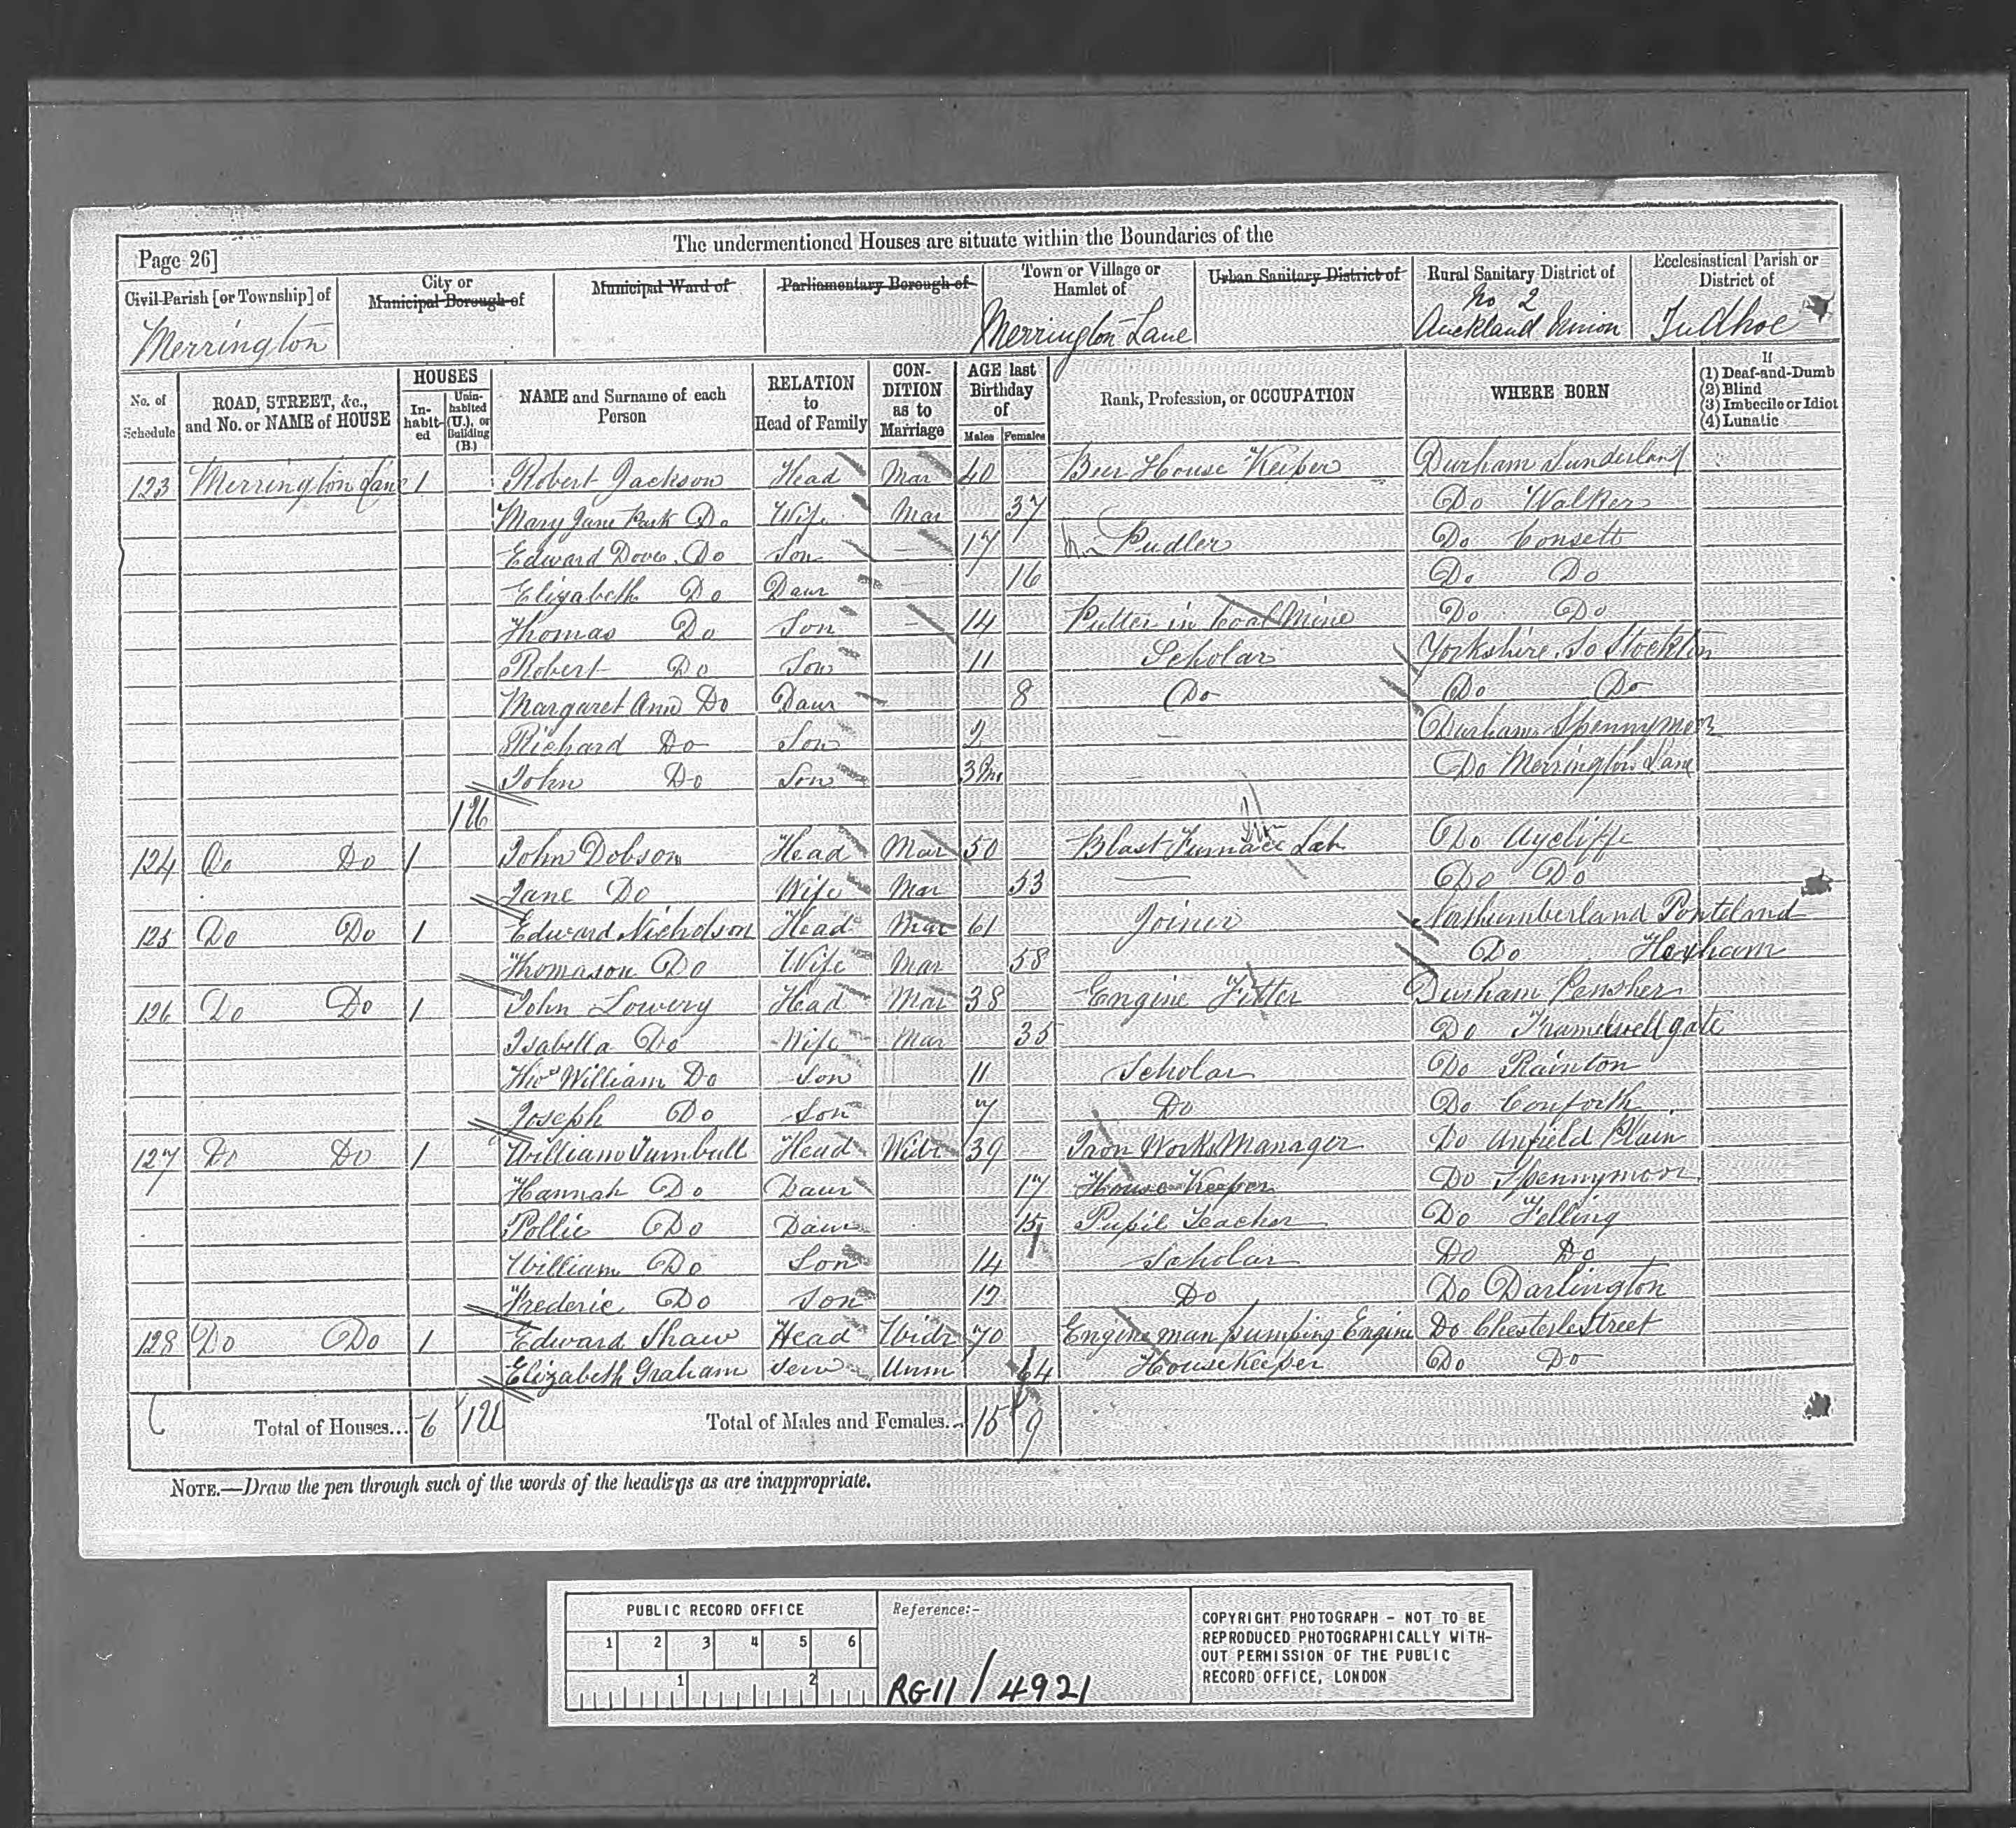 The undermentioned Houses are situate within the Boundaries of the
Page 26]
Civil Parish [or Township] of
Merrington
City or Municipal Borough of
Municipal Ward of
Parliamentary Borough of
Town or Village or Hamlet of
Merrington Lane
Urban Sanitary District of
Rural Sanitary District of
No 2
Auckland Union
Ecclesiastical Parish or District of
Tudhoe
No. of Schedule
ROAD, STREET, &c., and No. or NAME of HOUSE
HOUSES
In-habit-ed
Unin-habited (U.), or Building (B.)
NAME and Surname of each Person
RELATION to Head of Family
CON-DITION as to Marriage
AGE last Birthday of
Males Females
Rank, Profession, or OCCUPATION
WHERE BORN
If
(1) Deaf-and-Dumb
(2) Blind
(3) Imbecile or Idiot
(4) Lunatic
123 Merrington Lane 1 Robert Jackson Head Mar 40 Beer House Keeper Durham Sunderland
Mary Jane Park Do Wife Mar 37 Do Walker
Edward Dove Do Son — 17 Pudler Do Consett
Elizabeth Do Daur — 16 Do Do
Thomas Do Son — 14 Putter in Coal Mine Do Do
Robert Do Son 11 Scholar Yorkshire So Stockton
Margaret Ann Do Daur 8 Do Do Do
Richard Do Son 2 — Durham Spennymoor
John Do Son 3 Mo — Do Merrington Lane
1U
124 Do Do 1 John Dobson Head Mar 50 Blast Furnace Lab Do Aycliffe
Jane Do Wife Mar 53 — Do Do
125 Do Do 1 Edward Nicholson Head Mar 61 Joiner Northumberland Ponteland
Thomason Do Wife Mar 58 Do Hexham
126 Do Do 1 John Lowery Head Mar 38 Engine Fitter Durham Pensher
Isabella Do Wife Mar 35 Do Framelwellgate
Thos William Do Son 11 Scholar Do Rainton
Joseph Do Son 7 Do Do Conforth
127 Do Do 1 William Turnbull Head Widr 39 Iron Works Manager Do Anfield Plain
Hannah Do Daur 17 House Keeper Do Spennymoor
Pollie Do Daur 15 Pupil Teacher Do Felling
William Do Son 14 Scholar Do Do
Frederic Do Son 12 Do Do Darlington
128 Do Do 1 Edward Shaw Head Widr 70 Engine man pumping Engine Do Chesterlestreet
Elizabeth Graham Serv Unm 64 Housekeeper Do Do
Total of Houses... 6 1U Total of Males and Females... 15 9
NOTE.—Draw the pen through such of the words of the headings as are inappropriate.
PUBLIC RECORD OFFICE
1 2 3 4 5 6
1 2
Reference:-
RG11/4921
COPYRIGHT PHOTOGRAPH - NOT TO BE
REPRODUCED PHOTOGRAPHICALLY WITH-
OUT PERMISSION OF THE PUBLIC
RECORD OFFICE, LONDON